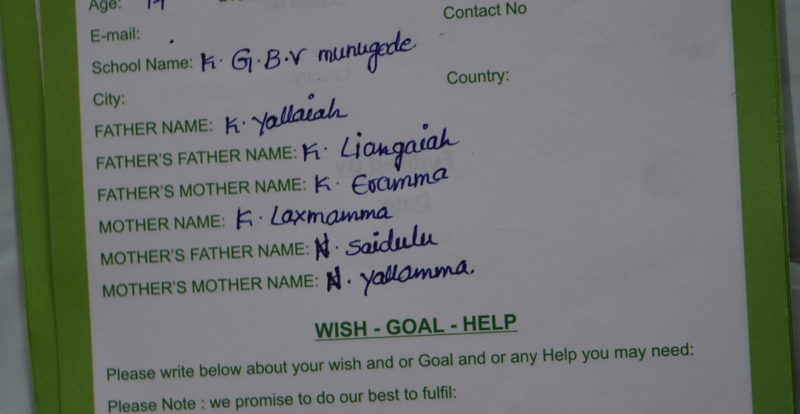 Age: 14
Contact No
E-mail: .
School Name: K. G.B.V munugode
City:
Country:
FATHER NAME: K. Yallaiah
FATHER'S FATHER NAME: K. Liangaiah
FATHER'S MOTHER NAME: K. Eramma
MOTHER NAME: K. Laxmamma
MOTHER'S FATHER NAME: N. Saidulu
MOTHER'S MOTHER NAME: N. Yallamma.
WISH - GOAL - HELP
Please write below about your wish and or Goal and or any Help you may need:
Please Note : we promise to do our best to fulfil: